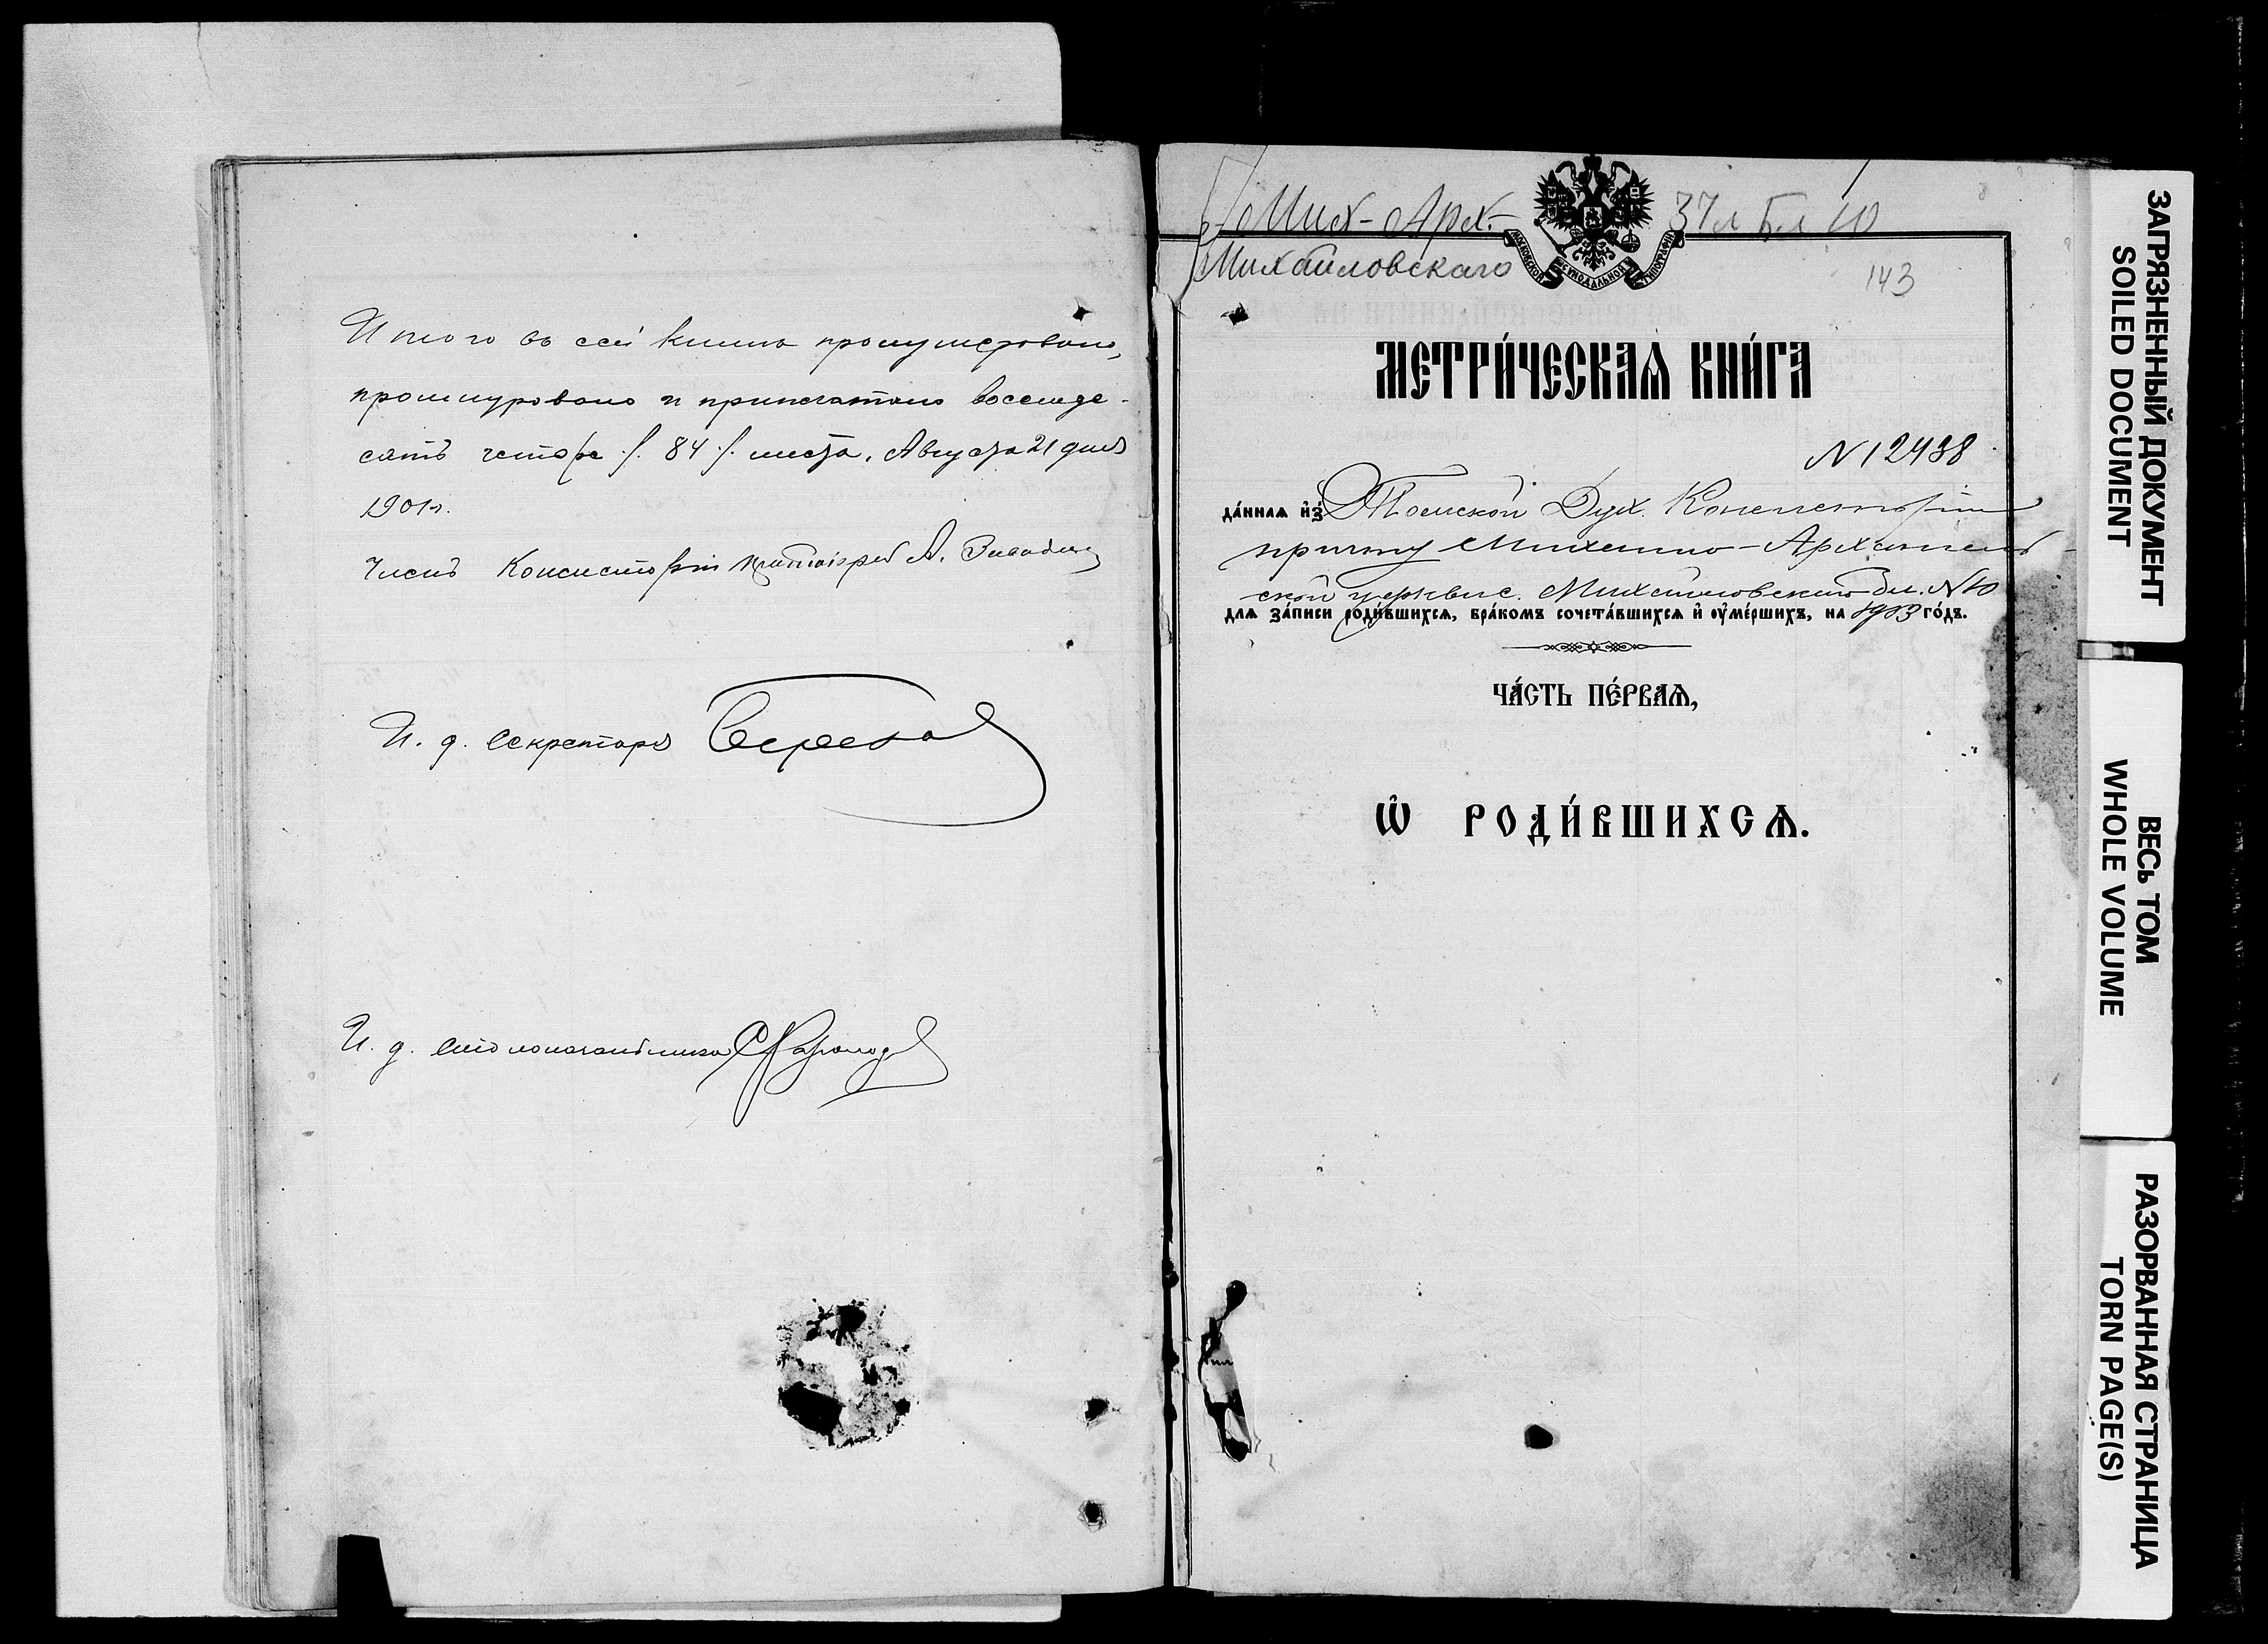 Итого въ сей книгѣ пронумеровано,
прошнуровано и припечатано восемьде-
сятъ четыре /. 84 /. листа, Августа 21 дня
1901 г.
Членъ Консисторіи А.
И. д. Секретаря
И. д. Столоначальника
Мих-Арх- 37 л Бл 10
Михайловскаго
МОСКОВСКОЙ СѴНОДАЛЬНОЙ ТИПОГРАФІИ
143
МЕТРИ́ЧЕСКАѦ КНИ́ГА
N 12438
да́ннаѧ и҆з̾ Томской Дух. Консисторіи
причту Михаило-Архангель-
ской церкви с. Михайловскаго бл. № 10
длѧ за́писи роди́вшихсѧ, бра́комъ сочета́вшихсѧ и҆ оу҆ме́ршихъ, на 1903 го́дъ.
ЧА́СТЬ ПЕ́РВАѦ,
Ѽ РОДИ́ВШИХСѦ.
ЗАГРЯЗНЕННЫЙ ДОКУМЕНТ
SOILED DOCUMENT
ВЕСЬ ТОМ
WHOLE VOLUME
РАЗОРВАННАЯ СТРАНИЦА
TORN PAGE(S)